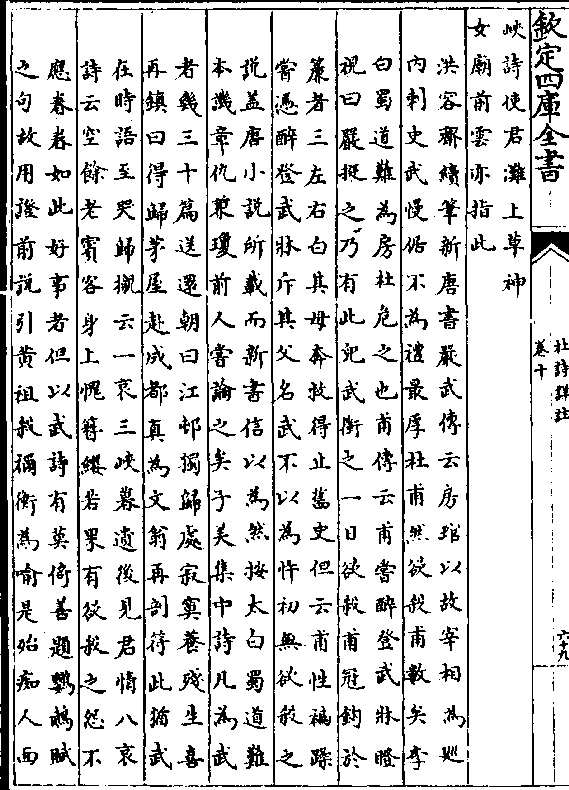 欽定四庫全書
杜詩詳註
卷十
六十九
峽詩使君灘上草神
女廟前雲亦指此
洪容齋續筆新唐書嚴武傳云房琯以故宰相為巡
内刺史武慢倨不為禮最厚杜甫然欲殺甫數矣李
白蜀道難為房杜危之也甫傳云甫嘗醉登武牀瞪
視曰嚴挺之乃有此兒武銜之一日欲殺甫冠鉤於
簾者三左右白其母奔救得止舊史但云甫性褊躁
嘗憑醉登武牀斥其父名武不以為忤初無欲殺之
說盖唐小說所載而新書信以為然按太白蜀道難
本譏章仇兼瓊前人嘗論之矣子美集中詩凡為武
者幾三十篇送還朝曰江邨獨歸處寂寞養殘生喜
再鎮曰得歸茅屋赴成都真為文翁再剖符此猶武
在時語至哭歸櫬云一哀三峽暮遺後見君情八哀
詩云空餘老賓客身上愧簪纓若果有欲殺之怨不
應眷眷如此好事者但以武詩有莫倚善題鸚鵡賦
之句故用證前說引黄祖殺禰衡為喻是殆痴人面